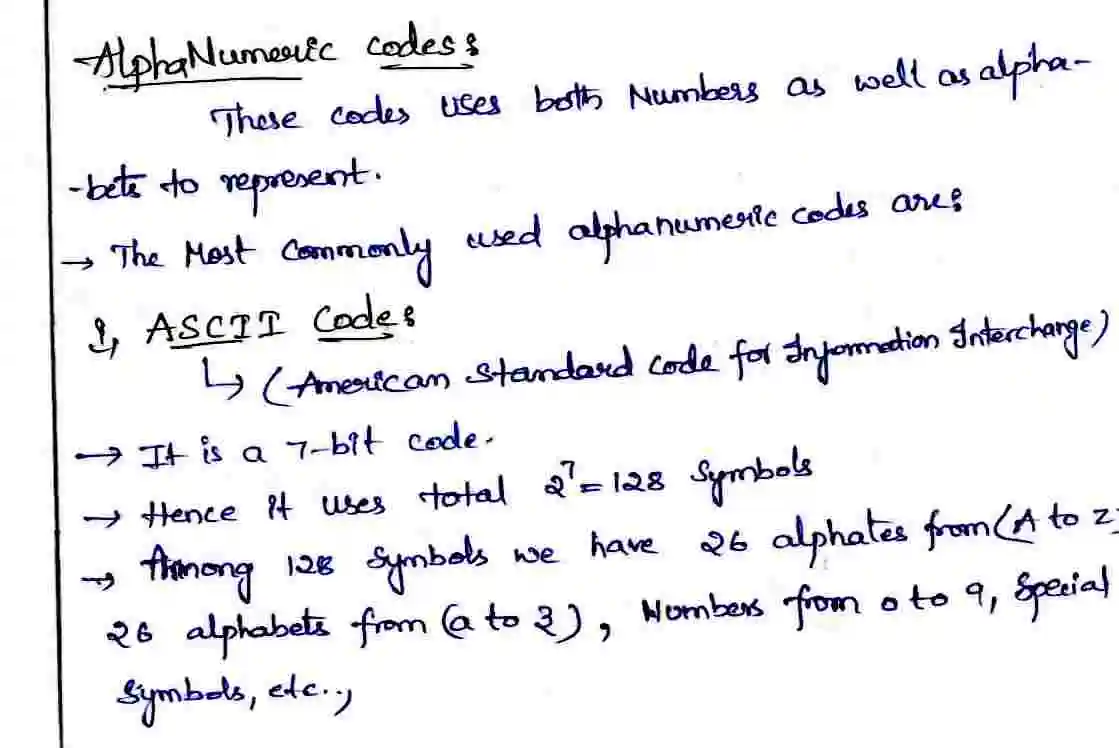 AlphaNumeric codes:
These codes uses both Numbers as well as alpha-
-bets to represent.
→ The Most Commonly used alphanumeric codes are:
1, ASCII Code:
↳ (American standard code for Information Interchange)
→ It is a 7-bit code.
→ Hence it uses total 2⁷=128 Symbols
→ Among 128 Symbols we have 26 alphates from (A to Z)
26 alphabets from (a to z), Numbers from 0 to 9, Special
Symbols, etc..,